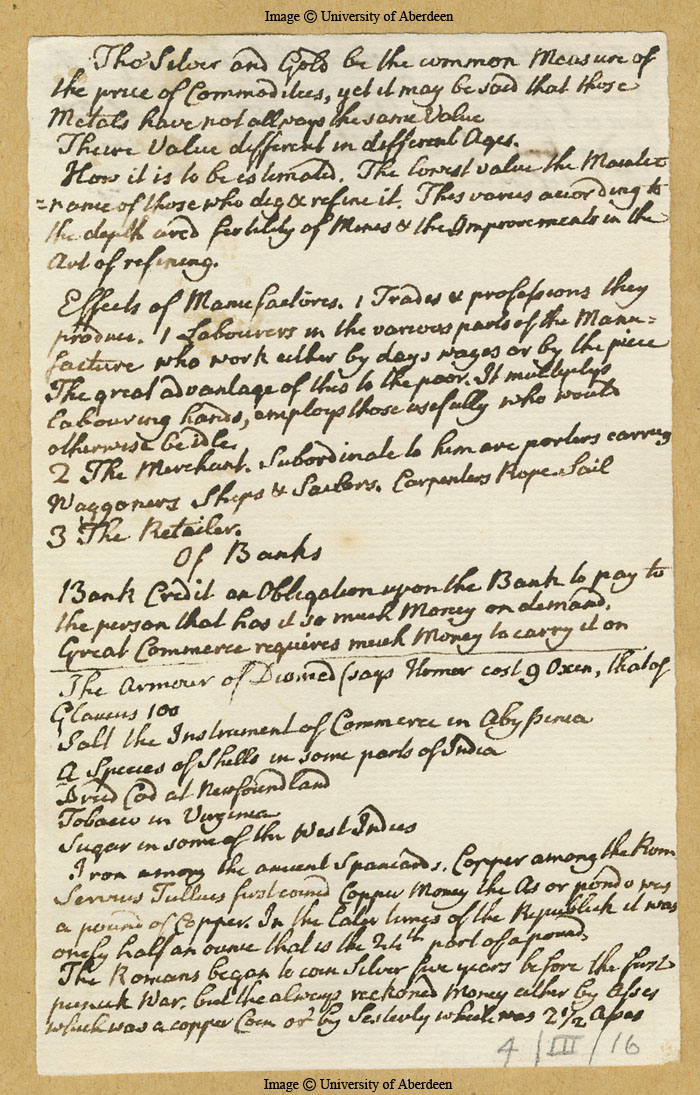 Image © University of Aberdeen
Tho' Silver and Gold be the common Measure of
the price of Commodities, yet it may be said that those
Metals have not allways the same Value
Theire Value different in different Ages.
How it is to be estimated. The lowest value the Mainte
=nance of those who dig & refine it. This varies according to
the depth and fertility of Mines & the Improvements in the
Art of refining.
Effects of Manufactores. 1 Trades & professions they
produce. 1 Labourers in the various parts of the Manu=
facture who work either by days wages or by the piece
The great advantage of this to the poor. It multiplys
labouring hands, employs those usefully who would
otherwise be idle.
2 The Merchant. Subordinate to him are porters carriers
Waggoners Ships & Sailors. Carpenters Rope & Sail
3 The Retailer.
Of Banks
Bank Credit an Obligation upon the Bank to pay to
the person that has it so much Money on demand.
Great Commerce requires much Money to carry it on
The Armour of Diomed (says Homer cost 9 Oxen, that of
Glaucus 100
Salt the Instrument of Commerce in Abyssinia
A Species of Shells in some parts of India
Dried Cod at Newfoundland
Tobacco in Virginea
Sugar in some of the West Indies
Iron among the ancient Spartans. Copper among the Rom
Servius Tullius first coined Copper Money the As or pondo was
a pound of Copper. In the later times of the Republick it was
onely half an ounce that is the 24th part of a pound.
The Romans began to coin Silver five years before the first
punick War. but the always reckoned Money either by Asses
which was a copper Coin or by which was 2½ Asses
4/III/16
Image © University of Aberdeen